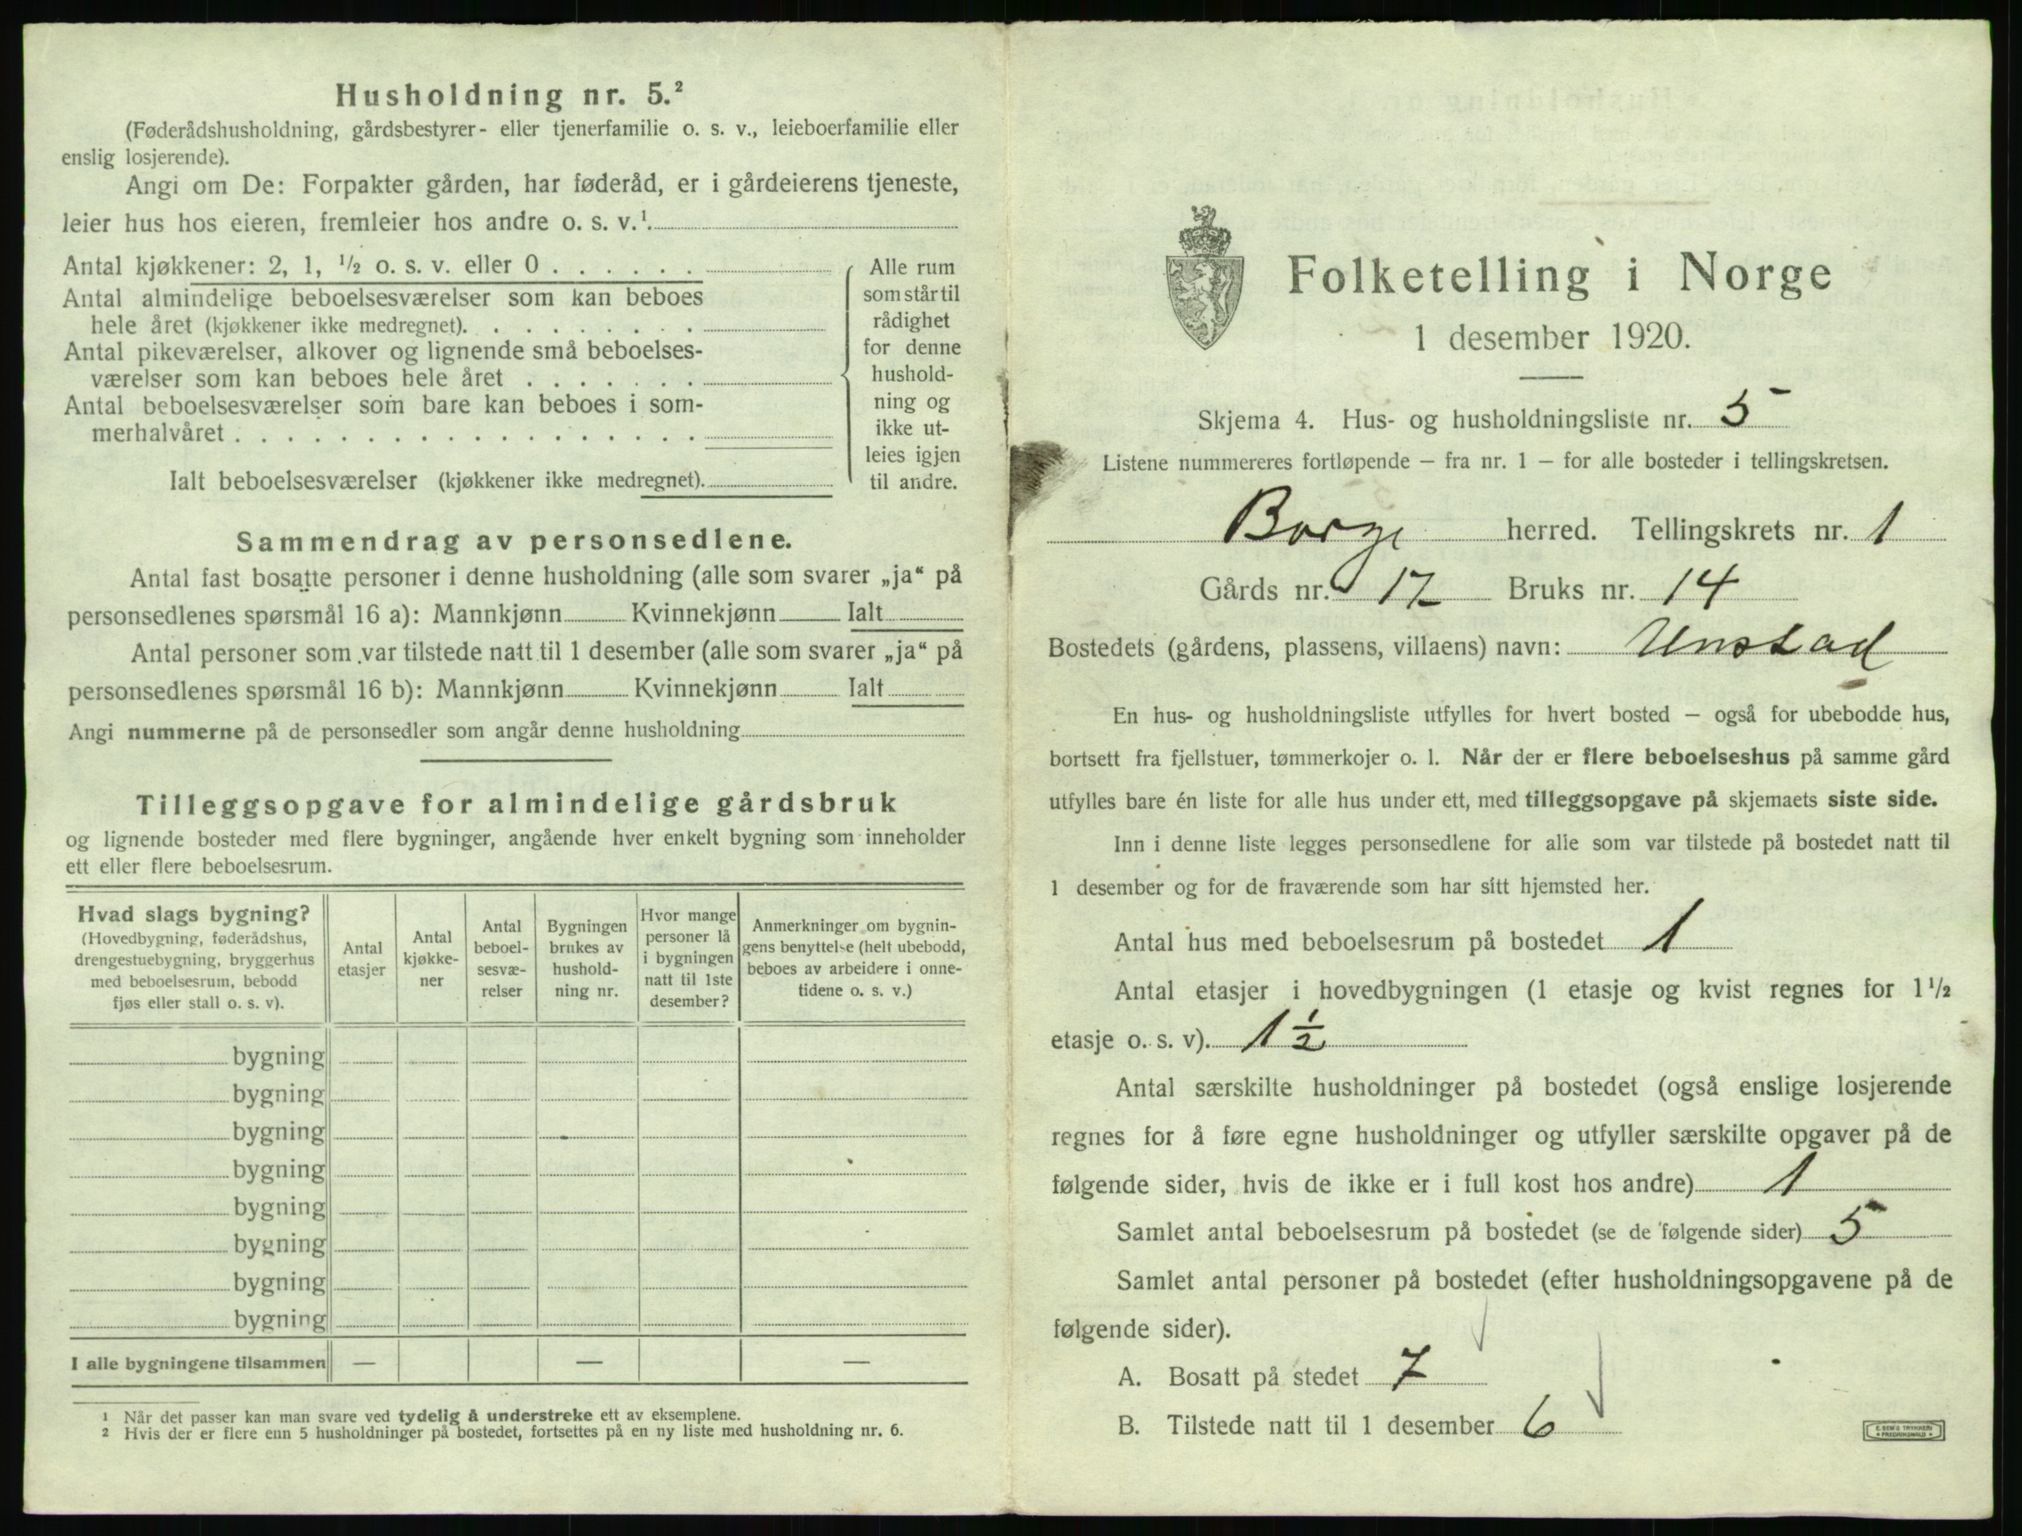 Husholdning nr. 5.²
(Føderådshusholdning, gårdsbestyrer- eller tjenerfamilie o. s. v., leieboerfamilie eller
enslig losjerende).
Angi om De: Forpakter gården, har føderåd, er i gårdeierens tjeneste,
leier hus hos eieren, fremleier hos andre o. s. v.¹
Antal kjøkkener: 2, 1, ½ o. s. v. eller 0 . . . . . .
Antal almindelige beboelsesværelser som kan beboes
hele året (kjøkkener ikke medregnet). . . . . . . . .
Antal pikeværelser, alkover og lignende små beboelses-
værelser som kan beboes hele året . . . . . . .
Antal beboelsesværelser som bare kan beboes i som-
merhalvåret . . . . . . . . . . . . . . . . . .
Ialt beboelsesværelser (kjøkkener ikke medregnet).
Alle rum
som står til
rådighet
for denne
hushold-
ning og
ikke ut-
leies igjen
til andre.
Sammendrag av personsedlene.
Antal fast bosatte personer i denne husholdning (alle som svarer „ja“ på
personsedlenes spørsmål 16 a): Mannkjønn Kvinnekjønn Ialt
Antal personer som var tilstede natt til 1 desember (alle som svarer „ja“ på
personsedlenes spørsmål 16 b): Mannkjønn Kvinnekjønn Ialt
Angi nummerne på de personsedler som angår denne husholdning
Tilleggsopgave for almindelige gårdsbruk
og lignende bosteder med flere bygninger, angående hver enkelt bygning som inneholder
ett eller flere beboelsesrum.
Hvad slags bygning?
(Hovedbygning, føderådshus,
drengestuebygning, bryggerhus
med beboelsesrum, bebodd
fjøs eller stall o. s. v).
Antal
etasjer
Antal
kjøkke-
ner
Antal
beboel-
sesvæ-
relser
Bygningen
brukes av
hushold-
ning nr.
Hvor mange
personer lå
i bygningen
natt til 1ste
desember?
Anmerkninger om bygnin-
gens benyttelse (helt ubebodd,
beboes av arbeidere i onne-
tidene o. s. v.)
bygning
bygning
bygning
bygning
bygning
bygning
bygning
bygning
I alle bygningene tilsammen — — —
¹ Når det passer kan man svare ved tydelig å understreke ett av eksemplene.
² Hvis der er flere enn 5 husholdninger på bostedet, fortsettes på en ny liste med husholdning nr. 6.
Folketelling i Norge
1 desember 1920.
Skjema 4. Hus- og husholdningsliste nr. 5
Listene nummereres fortløpende – fra nr. 1 – for alle bosteder i tellingskretsen.
Borge herred. Tellingskrets nr. 1
Gårds nr. 17 Bruks nr. 14
Bostedets (gårdens, plassens, villaens) navn: Unstad
En hus- og husholdningsliste utfylles for hvert bosted – også for ubebodde hus,
bortsett fra fjellstuer, tømmerkojer o. l. Når der er flere beboelseshus på samme gård
utfylles bare én liste for alle hus under ett, med tilleggsopgave på skjemaets siste side.
Inn i denne liste legges personsedlene for alle som var tilstede på bostedet natt til
1 desember og for de fraværende som har sitt hjemsted her.
Antal hus med beboelsesrum på bostedet 1
Antal etasjer i hovedbygningen (1 etasje og kvist regnes for 1½
etasje o. s. v). 1½
Antal særskilte husholdninger på bostedet (også enslige losjerende
regnes for å føre egne husholdninger og utfyller særskilte opgaver på de
følgende sider, hvis de ikke er i full kost hos andre) 1
Samlet antal beboelsesrum på bostedet (se de følgende sider) 5
Samlet antal personer på bostedet (efter husholdningsopgavene på de
følgende sider).
A. Bosatt på stedet 7
B. Tilstede natt til 1 desember 6